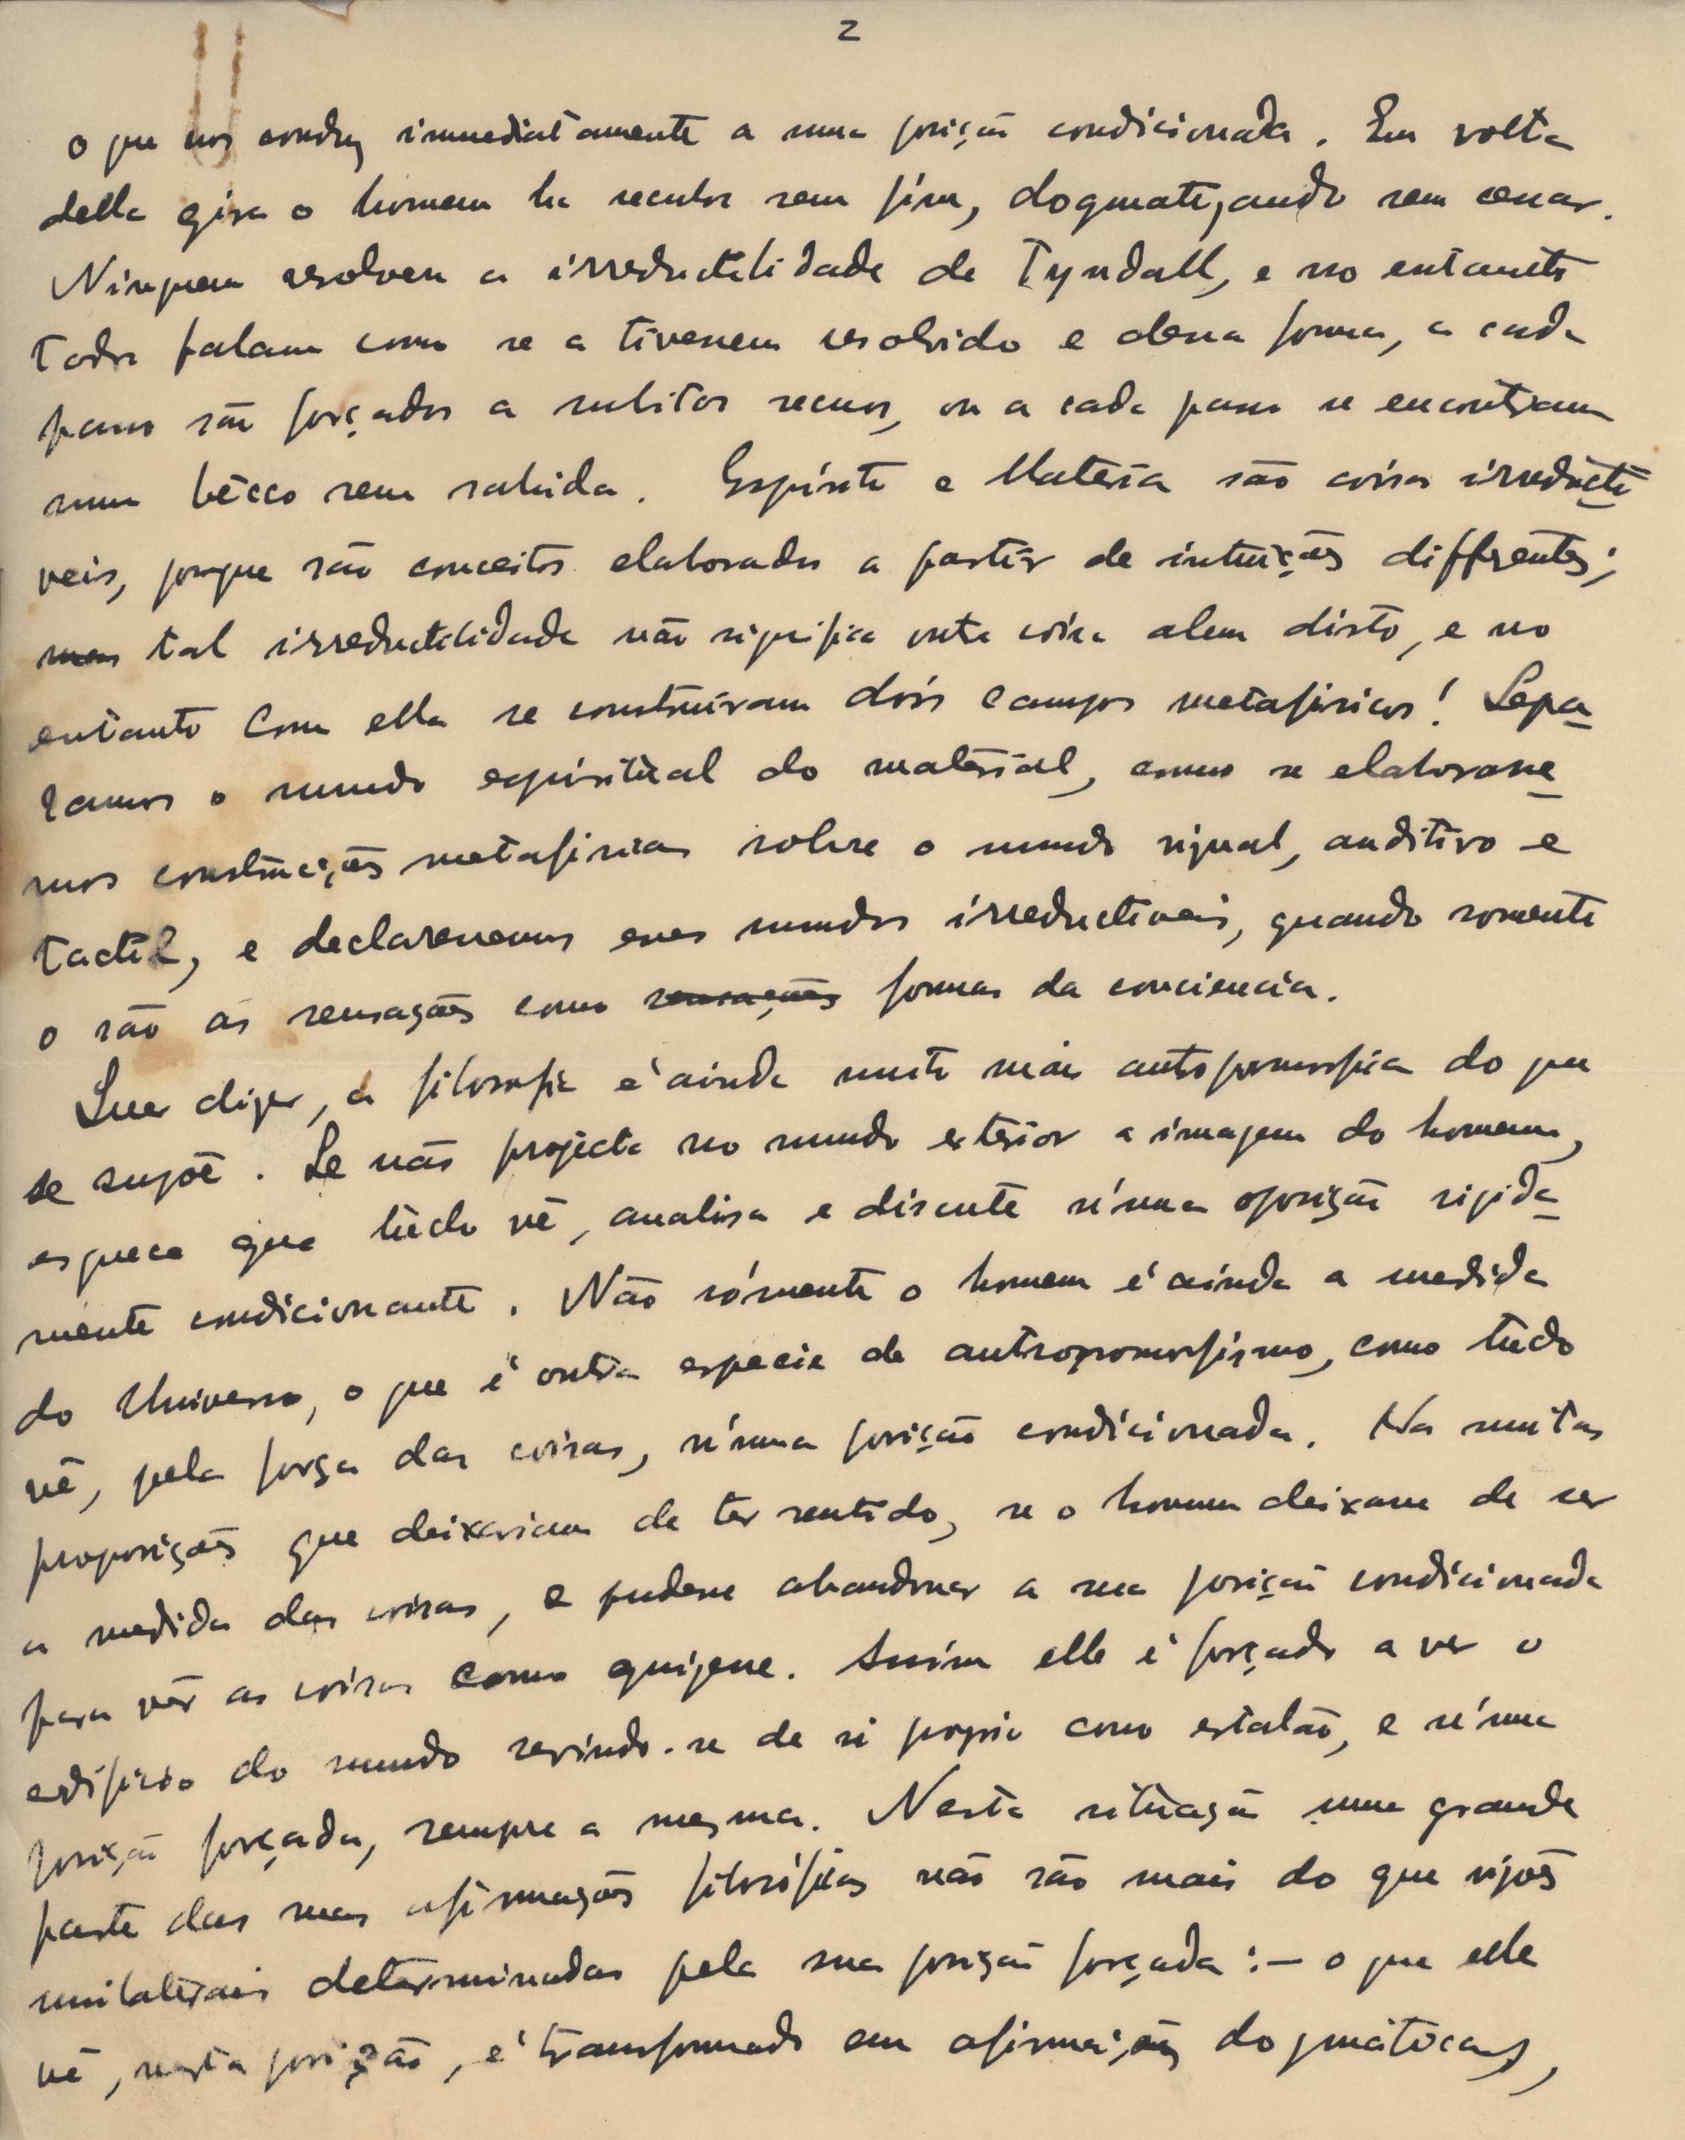 2
o que nos conduz immediatamente a uma posição condicionada. Em volta
della gira o homem ha seculos sem fim, dogmatizando sem cessar.
Ninguem resolveu a irreductilidade de Tyndall, e no entanto
todos falam como se a tivessem resolvido e dessa forma, a cada
passo são forçados a subitos recuos, ou a cada passo se encontram
num bêcco sem sahida. Espirito e Materia são coisas irreducti
veis, porque são conceitos elaborados a partir de intuições differentes;
mas tal irreductilidade não significa outra coisa alem disto, e no
entanto com ella se construiram dois campos metafisicos! Sepa-
ramos o mundo espiritual do material, como se elaborasse-
mos construcções metafisicas sobre o mundo visual, auditivo e
tactil, e declarassemos esses mundos irreductiveis, quando somente
o são as sensações como sensações formas da conciencia.
Quer dizer, a filosofia é ainda muito mais antropomorfica do que
se supõe. Se não projecta no mundo exterior a imagem do homem,
esquece que tudo vê, analisa e discute n'uma posição rigida-
mente condicionante. Não sómente o homem é ainda a medida
do Universo, o que é outra especie de antropomorfismo, como tudo
vê, pela força das coisas, n'uma posição condicionada. Ha muitas
proposições que deixariam de ter sentido, se o homem deixasse de ser
a medida das coisas, e pudesse abandonar a sua posição condicionada
para vêr as coisas como quizesse. Assim elle é forçado a ver o
edificio do mundo servindo-se de si proprio como estalão, e n'uma
posição forçada, sempre a mesma. Nesta situação uma grande
parte das suas afirmações filosóficas não são mais do que visões
unilaterais determinadas pela sua posição forçada: – o que elle
vê, nesta posição, é transformado em afirmações dogmáticas,